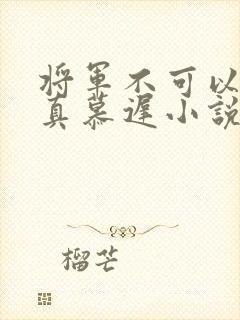 将军不可以
真慕遲小說
榴芒